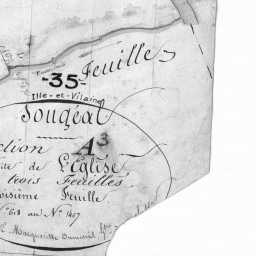 Feuille
-35-
Ille-et-Vilaine
Sougéal
ction A³
de L'Eglise
trois Feuilles
oisième Feuille
au N° 1407
Marguerite